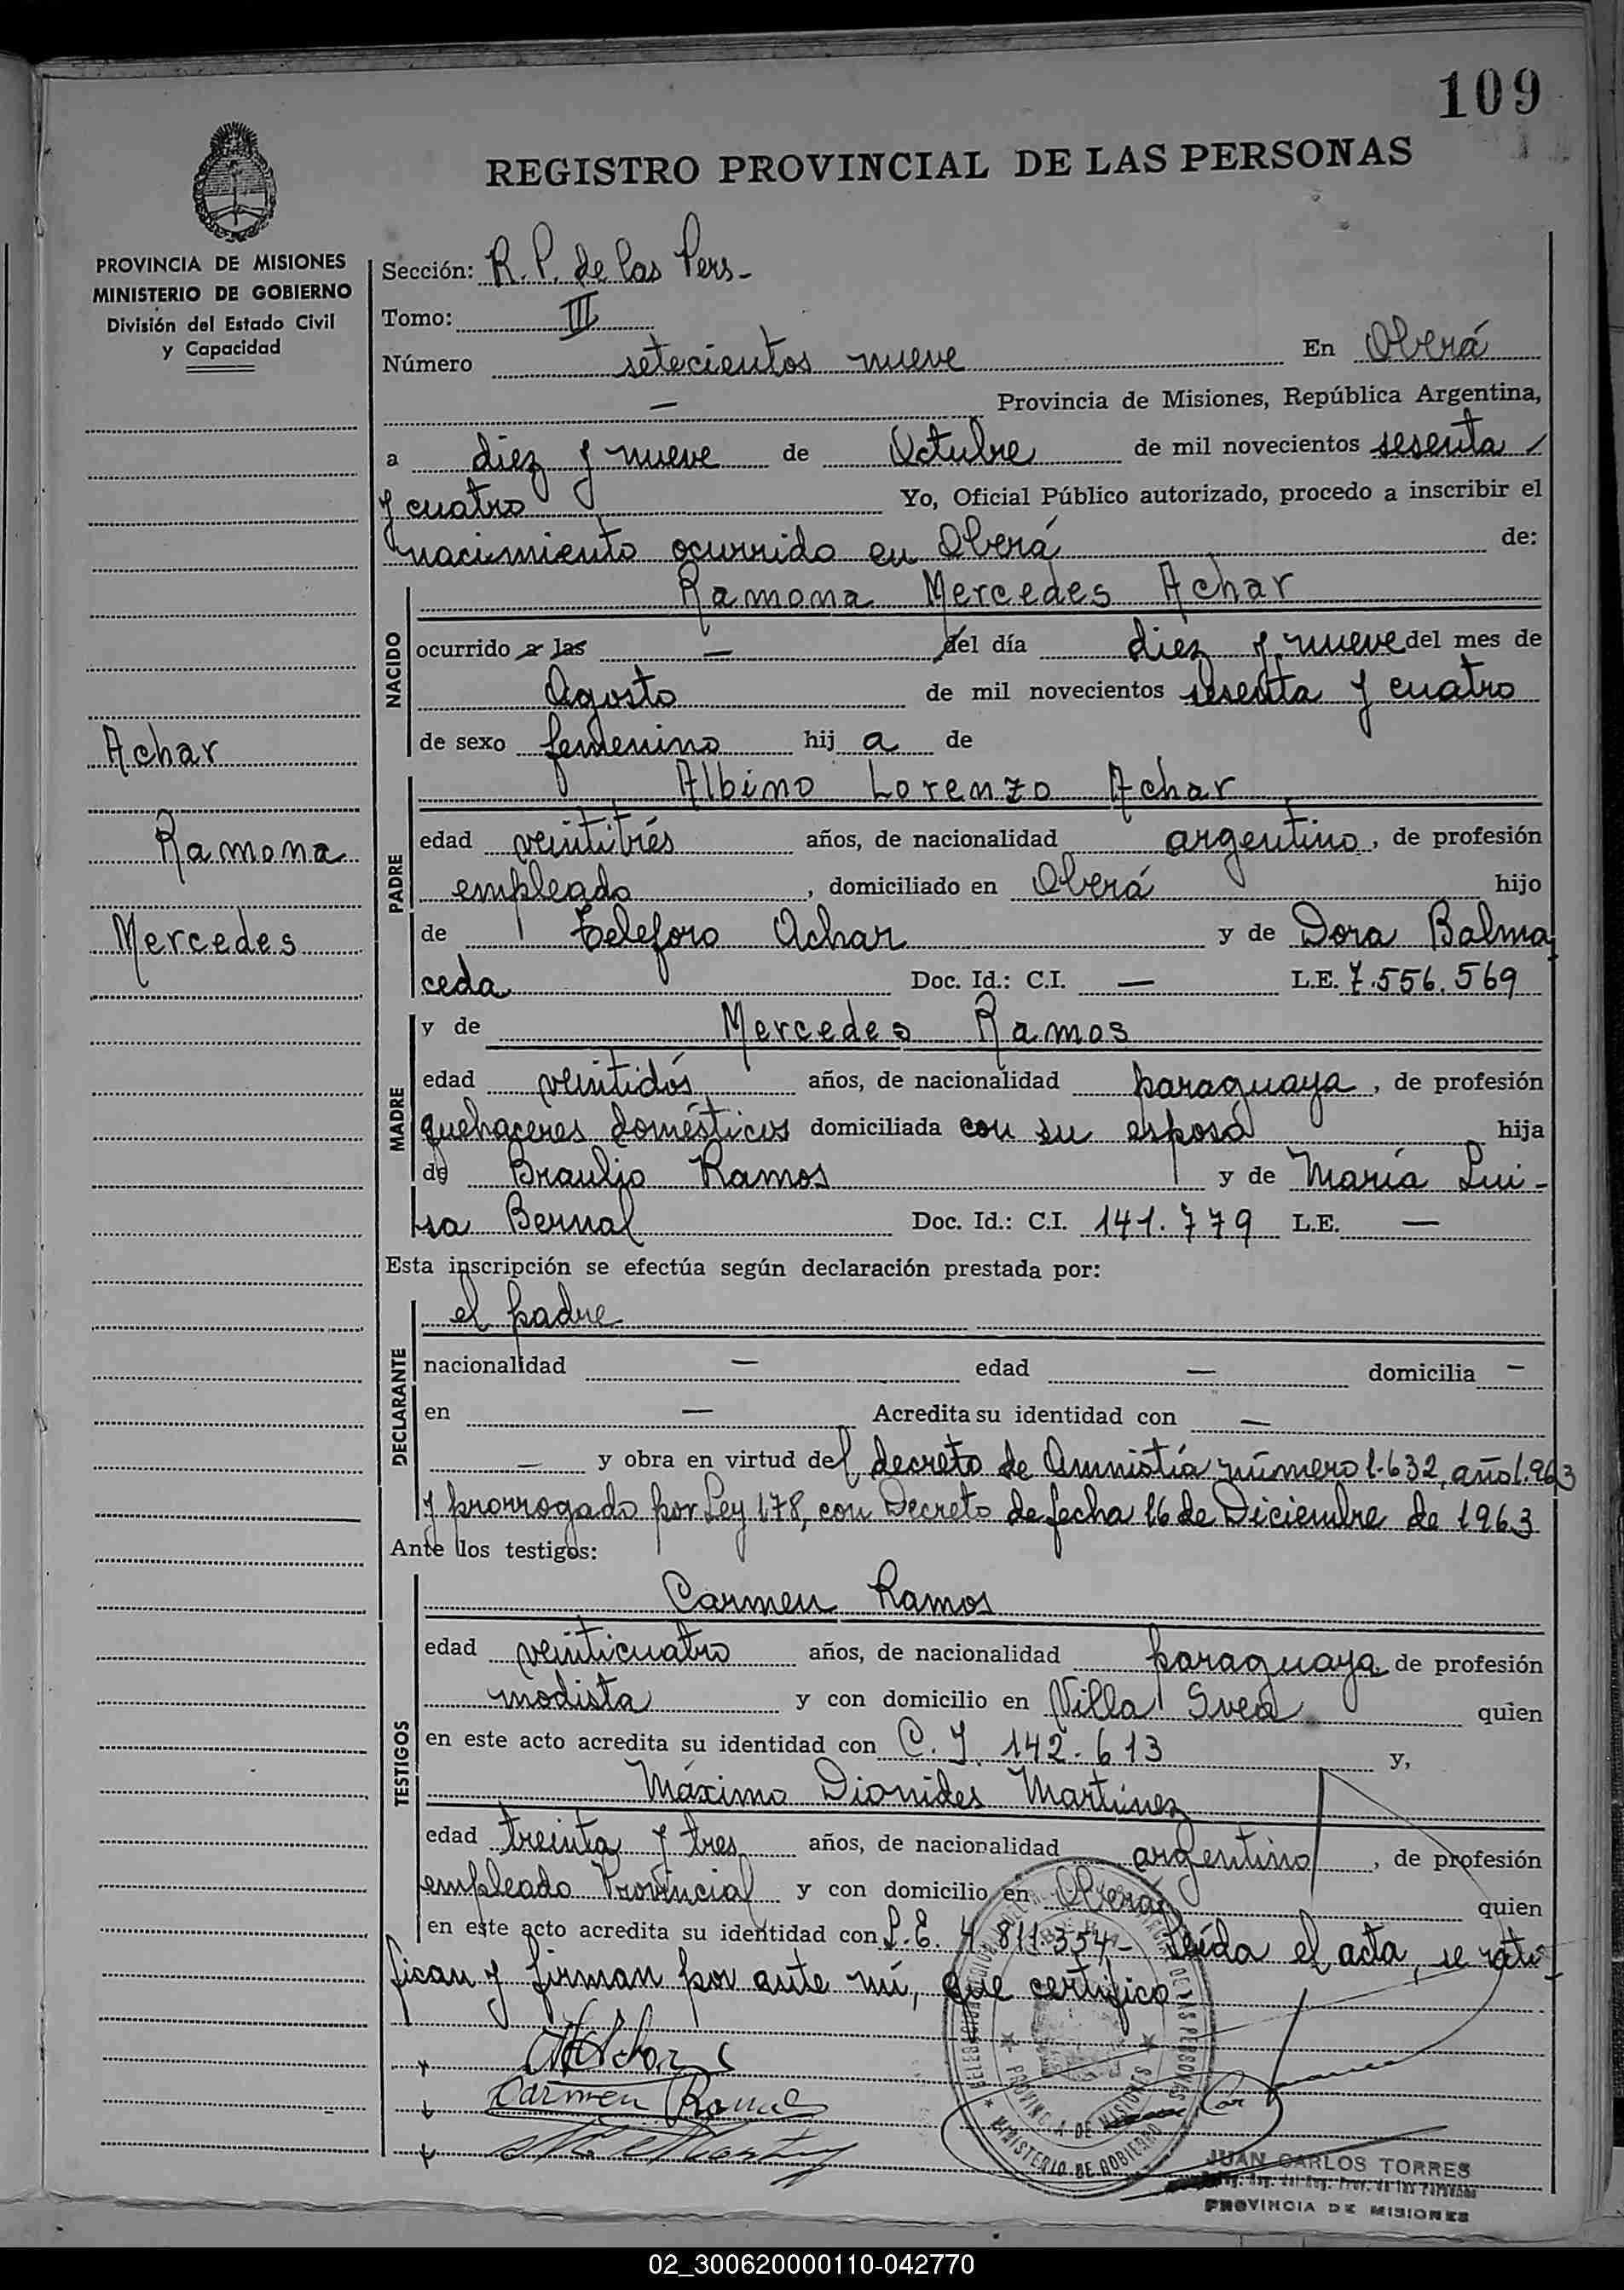 109
REGISTRO PROVINCIAL DE LAS PERSONAS
PROVINCIA DE MISIONES
MINISTERIO DE GOBIERNO
División del Estado Civil
y Capacidad
Achar
Ramona
Mercedes
Sección: R. P. de las Pers-
Tomo: III
Número setecientos nueve En Oberá
— Provincia de Misiones, República Argentina,
a diez y nueve de Octubre de mil novecientos sesenta
y cuatro Yo, Oficial Público autorizado, procedo a inscribir el
nacimiento ocurrido en Oberá de:
NACIDO
Ramona Mercedes Achar
ocurrido a las — del día diez y nueve del mes de
Agosto de mil novecientos sesenta y cuatro
de sexo femenino hij a de
PADRE
Albino Lorenzo Achar
edad veintitrés años, de nacionalidad argentino, de profesión
empleado, domiciliado en Oberá hijo
de Teleforo Achar y de Dora Balma
ceda Doc. Id.: C.I. — L.E. 7.556.569
MADRE
y de Mercedes Ramos
edad veintidós años, de nacionalidad paraguaya, de profesión
quehaceres domésticos domiciliada con su esposo hija
de Braulio Ramos y de María Lui-
sa Bernal Doc. Id.: C.I. 141.779 L.E. —
Esta inscripción se efectúa según declaración prestada por:
DECLARANTE
el padre
nacionalidad — edad — domicilia —
en — Acredita su identidad con —
— y obra en virtud del decreto de Amnistía número 1.632, año 1.963
y prorrogado por Ley 178, con Decreto de fecha 16 de Diciembre de 1963
Ante los testigos:
TESTIGOS
Carmen Ramos
edad veinticuatro años, de nacionalidad paraguaya de profesión
modista y con domicilio en Villa Svea quien
en este acto acredita su identidad con C. I. 142.613 y,
Máximo Dionides Martinez
edad treinta y tres años, de nacionalidad argentino, de profesión
empleado Provincial y con domicilio en Oberá quien
en este acto acredita su identidad con L.E. 4.811.354- Leída el acta, se rati-
fican y firman por ante mí, que certifico-
Carmen Ramos
PROVINCIA DE MISIONES
MINISTERIO DE GOBIERNO
JUAN CARLOS TORRES
PROVINCIA DE MISIONES
02_300620000110-042770